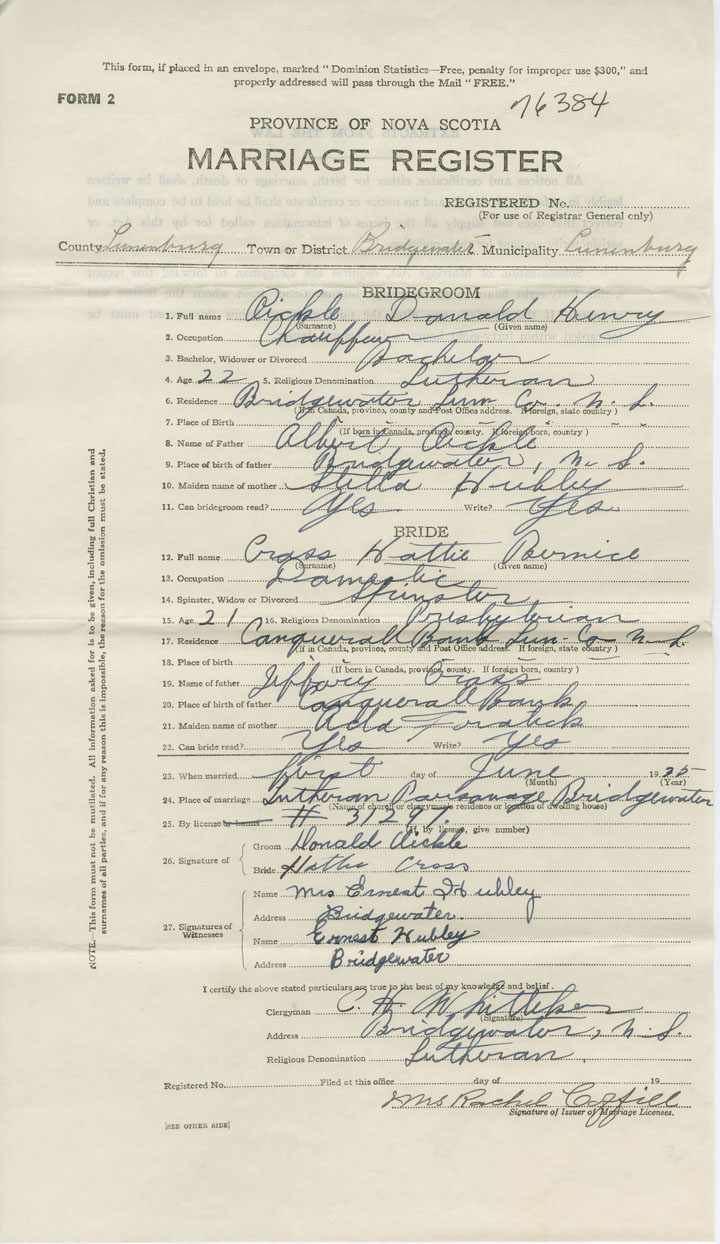 This form, if placed in an envelope, marked "Dominion Statistics—Free, penalty for improper use $300," and
properly addressed will pass through the Mail "FREE."
FORM 2
76384
PROVINCE OF NOVA SCOTIA
MARRIAGE REGISTER
REGISTERED No.
(For use of Registrar General only)
County Lunenburg Town or District Bridgewater Municipality Lunenburg
BRIDEGROOM
1. Full name Aickle Donald Henry
(Surname) (Given name)
2. Occupation Chauffeur
3. Bachelor, Widower or Divorced Bachelor
4. Age 22 5. Religious Denomination Lutheran
6. Residence Bridgewater Lun. Co. N. S.
(If in Canada, province, county and Post Office address. If foreign, state country)
7. Place of Birth " " " "
(If born in Canada, province, county. If foreign born, country)
8. Name of Father Albert Aickle
9. Place of birth of father Bridgewater, N. S.
10. Maiden name of mother Stella Hubley
11. Can bridegroom read? Yes Write? Yes
BRIDE
12. Full name Cross Hattie Bernice
(Surname) (Given name)
13. Occupation Domestic
14. Spinster, Widow or Divorced Spinster
15. Age 21 16. Religious Denomination Presbyterian
17. Residence Conquerall Bank Lun. Co N. S.
(If in Canada, province, county and Post Office address. If foreign, state country)
18. Place of birth
(If born in Canada, province, county. If foreign born, country)
19. Name of father Jeffory Cross
20. Place of birth of father Conquerall Bank
21. Maiden name of mother
22. Can bride read? Yes Write? Yes
23. When married first day of June 1935
(Month) (Year)
24. Place of marriage Lutheran Parsonage Bridgewater
(Name of church or clergyman's residence or location of dwelling house)
25. By license or banns # 37297.
(If by license, give number)
Groom Donald Aickle
26. Signature of
Bride Hattie Cross
Name Mrs Ernest Hubley
Address Bridgewater.
27. Signatures of Witnesses
Name Ernest Hubley
Address Bridgewater
I certify the above stated particulars are true to the best of my knowledge and belief.
Clergyman C. H. Whitteker
(Signature)
Address Bridgewater, N. S.
Religious Denomination Lutheran
Registered No. Filed at this office day of 19
Mrs Rachel Coffill
Signature of Issuer of Marriage Licenses.
[SEE OTHER SIDE]
NOTE.—This form must not be mutilated. All information asked for is to be given, including full Christian and
surnames of all parties, and if for any reason this is impossible, the reason for the omission must be stated.